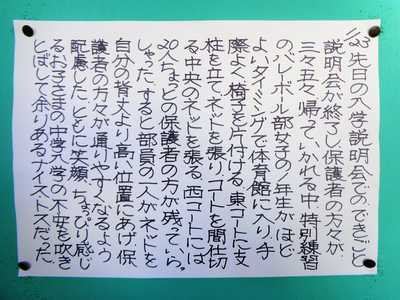 1/23先日の入学説明会でのできごと
説明会が終了し、保護者の方々が
三々五々、帰っていかれる中、特別練習
の、バレーボール部女子の1年生がほど
よいタイミングで体育館に入り、手
際よく椅子を片付ける、東コートに支
柱を立て、ネットを張り、コートを間仕切
る中央のネットを張る。西コートには
20人ちょっとの保護者の方が残っていら
しゃった。すると、部員の一人がネットを
自分の背丈より高い位置にあげ、保
護者の方々が通りやすくなるよう
配慮した。ともに笑顔。ちょっぴり感じ
るお子さまの中学入学の不安を吹き
とばして余りあるナイストスだった